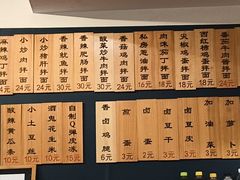 小炒肉拌面
24元
小炒猪肝拌面
24元
香辣鱿鱼拌面
30元
香辣肥肠拌面
30元
酸菜炒牛肉拌面
30元
香菇鸡肉拌面
24元
私房葱油拌面
18元
肉沫茄丁拌面
18元
尖椒鸡蛋拌面
18元
西红柿鸡蛋拌面
18元
24元
酸辣黄瓜条
10元
小土豆丝
10元
酒鬼花生米
10元
自制Q弹皮冻
15元
香卤鸡腿
6元
煎蛋
3元
卤蛋
3元
卤豆干
3元
卤豆皮
3元
加油菜
3元
加萝卜
3元